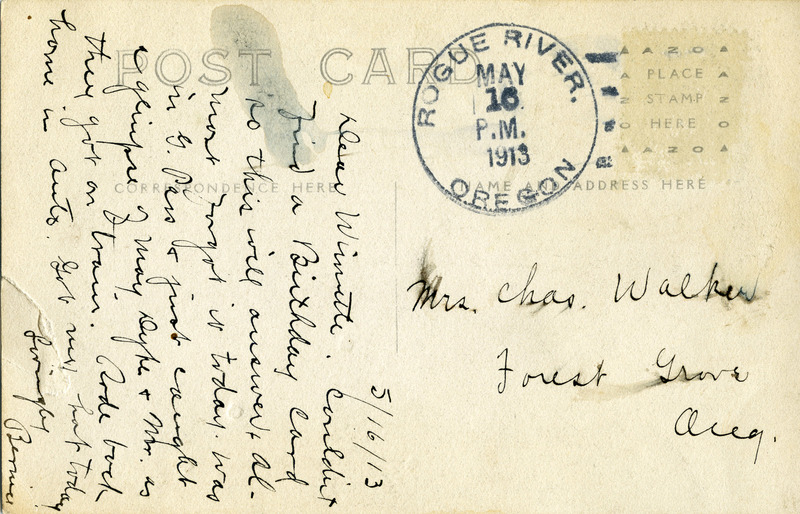 POST CARD
CORRESPONDENCE HERE
NAME AND ADDRESS HERE
AZO
PLACE
STAMP
HERE
AZO
ROGUE RIVER.
MAY
16
P.M.
1913
OREGON
5/16/13
Dear Winnie. Couldn't
find a Birthday Card
so this will answer & al-
most forgot it today. was
in G Pass & just caught
a glimpse of May & Mr. as
they got on train. Rode back
home in auto. Got my hat today
Lovingly
Bernice
Mrs. Chas. Walker
Forest Grove
Oreg.